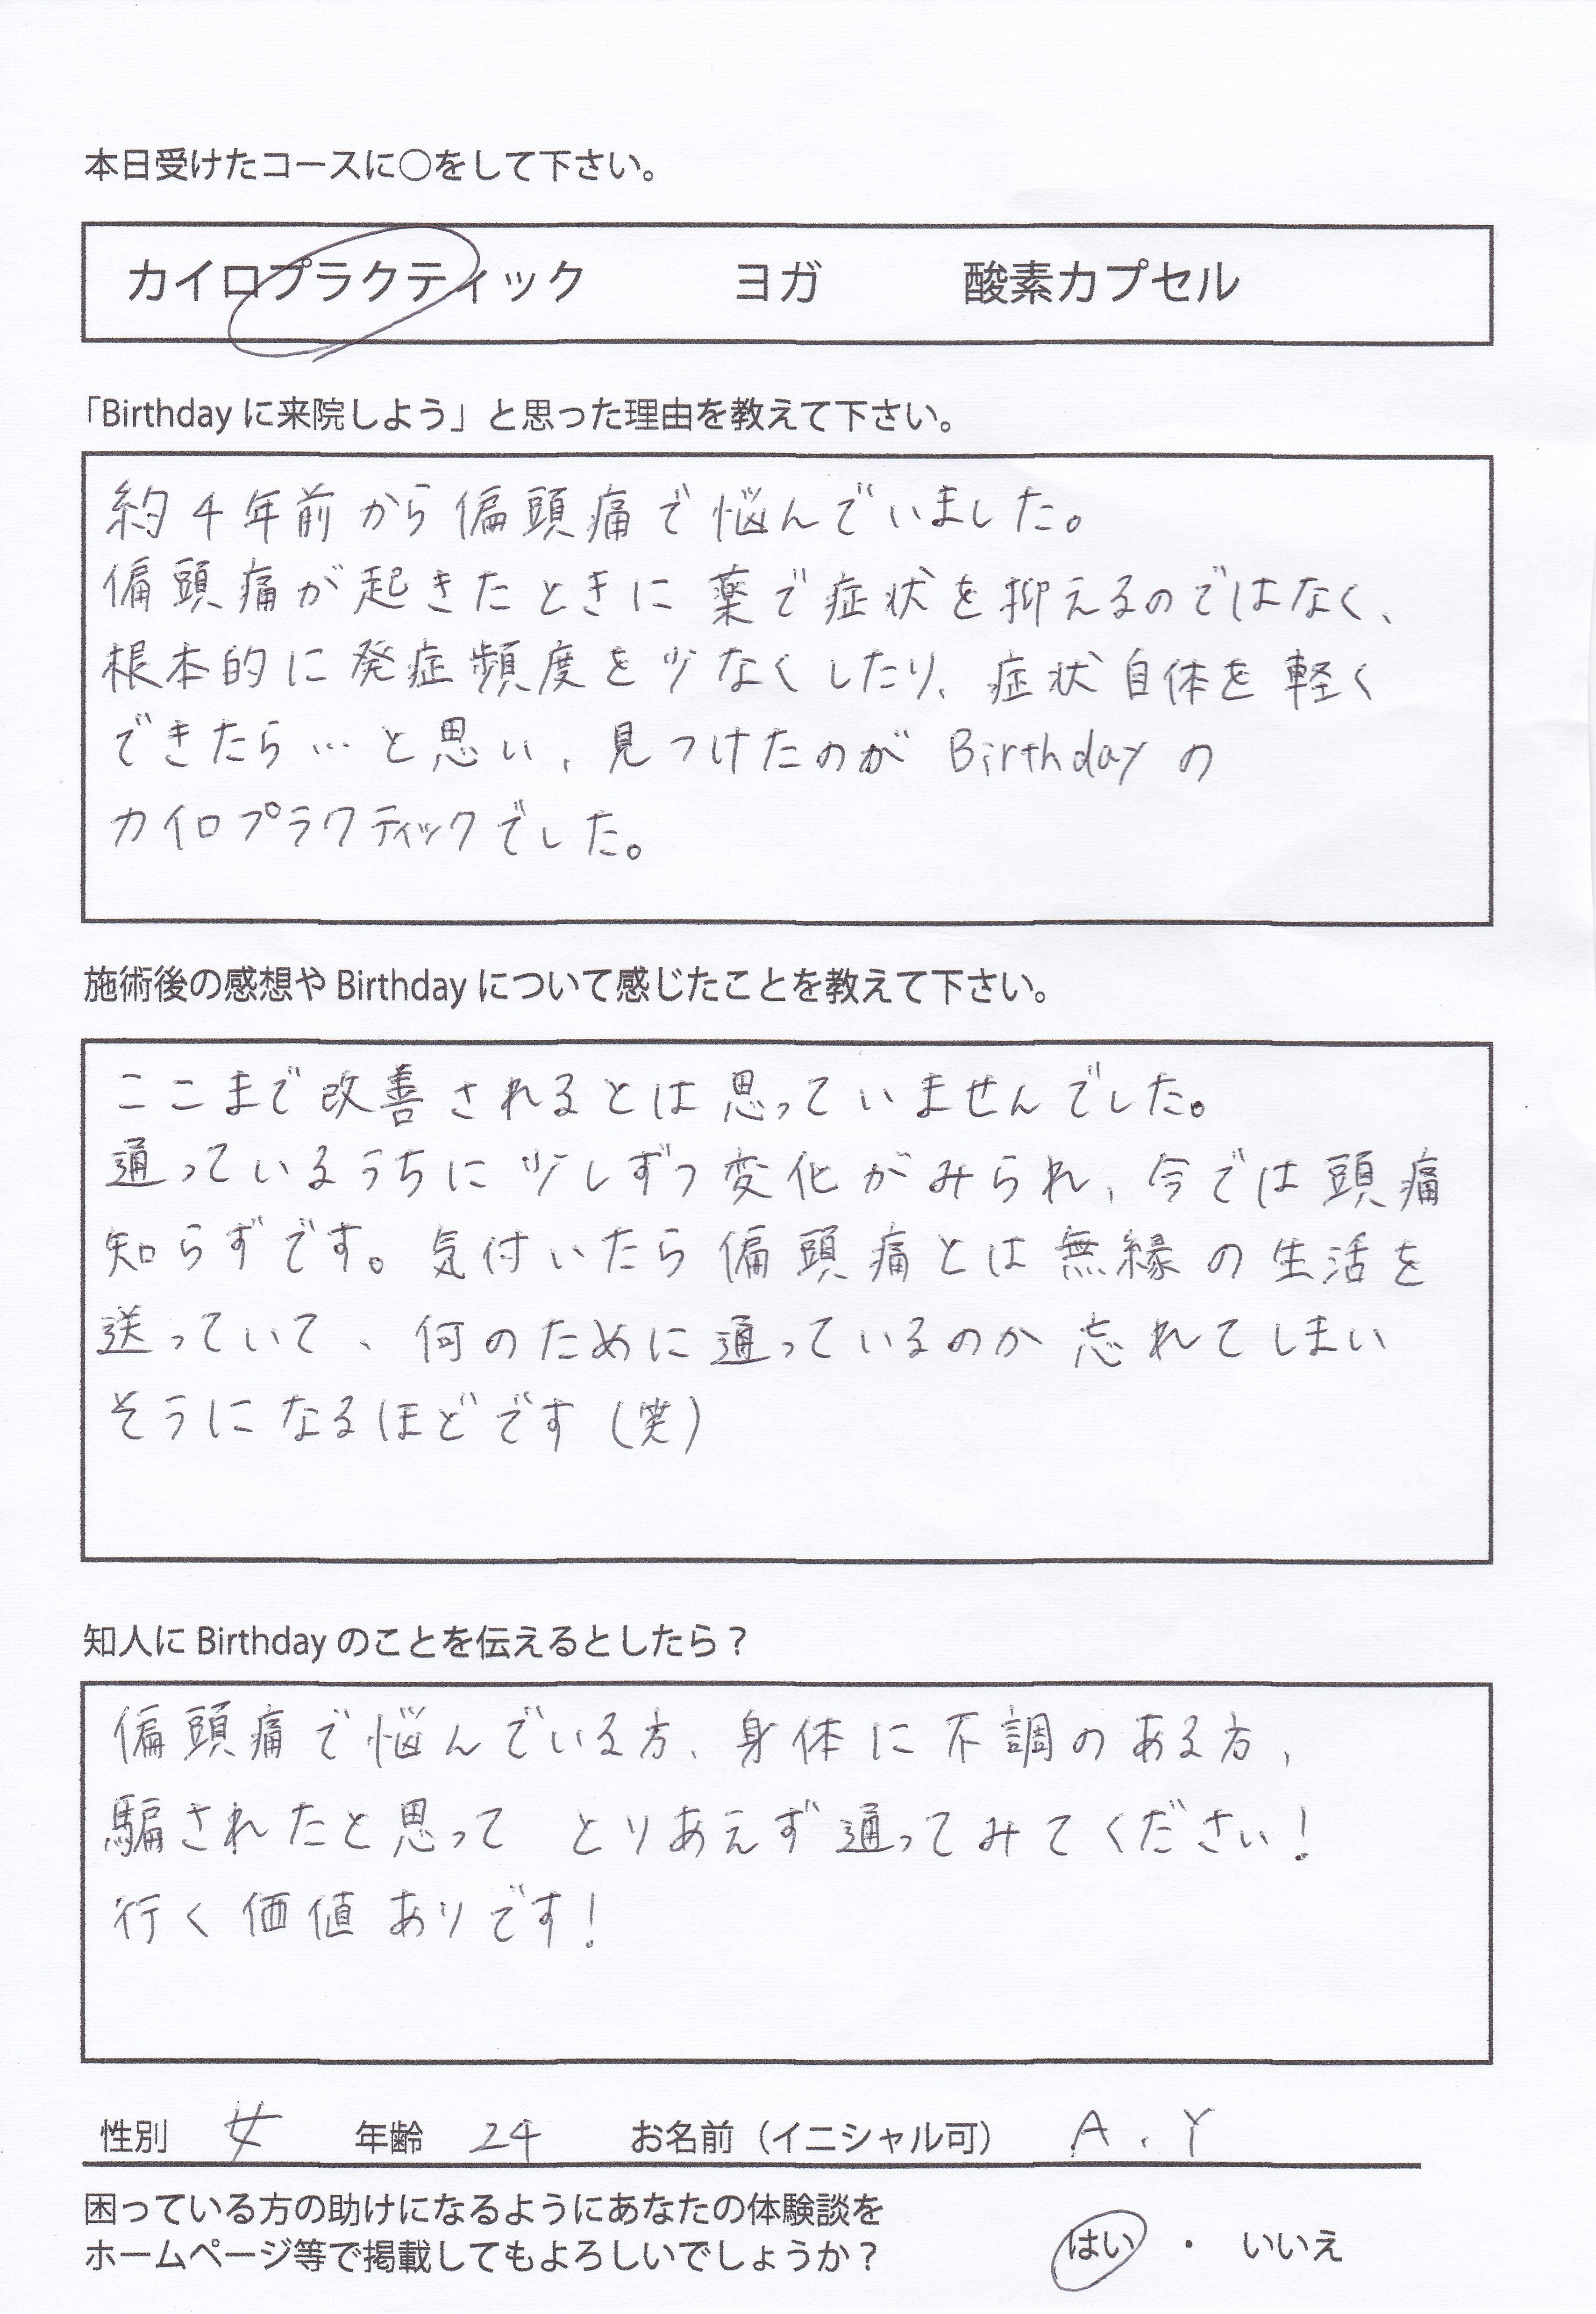 本日受けたコースに○をして下さい。
カイロプラクティック　ヨガ　酸素カプセル
「Birthday に来院しよう」と思った理由を教えて下さい。
約4年前から偏頭痛で悩んでいました。
偏頭痛が起きたときに薬で症状を抑えるのではなく、
根本的に発症頻度を少なくしたり、症状自体を軽く
できたら…と思い、見つけたのが Birthday の
カイロプラクティックでした。
施術後の感想や Birthday について感じたことを教えて下さい。
ここまで改善されるとは思っていませんでした。
通っているうちに少しずつ変化がみられ、今では頭痛
知らずです。気付いたら偏頭痛とは無縁の生活を
送っていて、何のために通っているのか忘れてしまい
そうになるほどです（笑）
知人に Birthday のことを伝えるとしたら？
偏頭痛で悩んでいる方、身体に不調のある方、
騙されたと思って とりあえず通ってみてください！
行く価値ありです！
性別　女　年齢　24　お名前（イニシャル可）　A．Y
困っている方の助けになるようにあなたの体験談を
ホームページ等で掲載してもよろしいでしょうか？　はい ・ いいえ